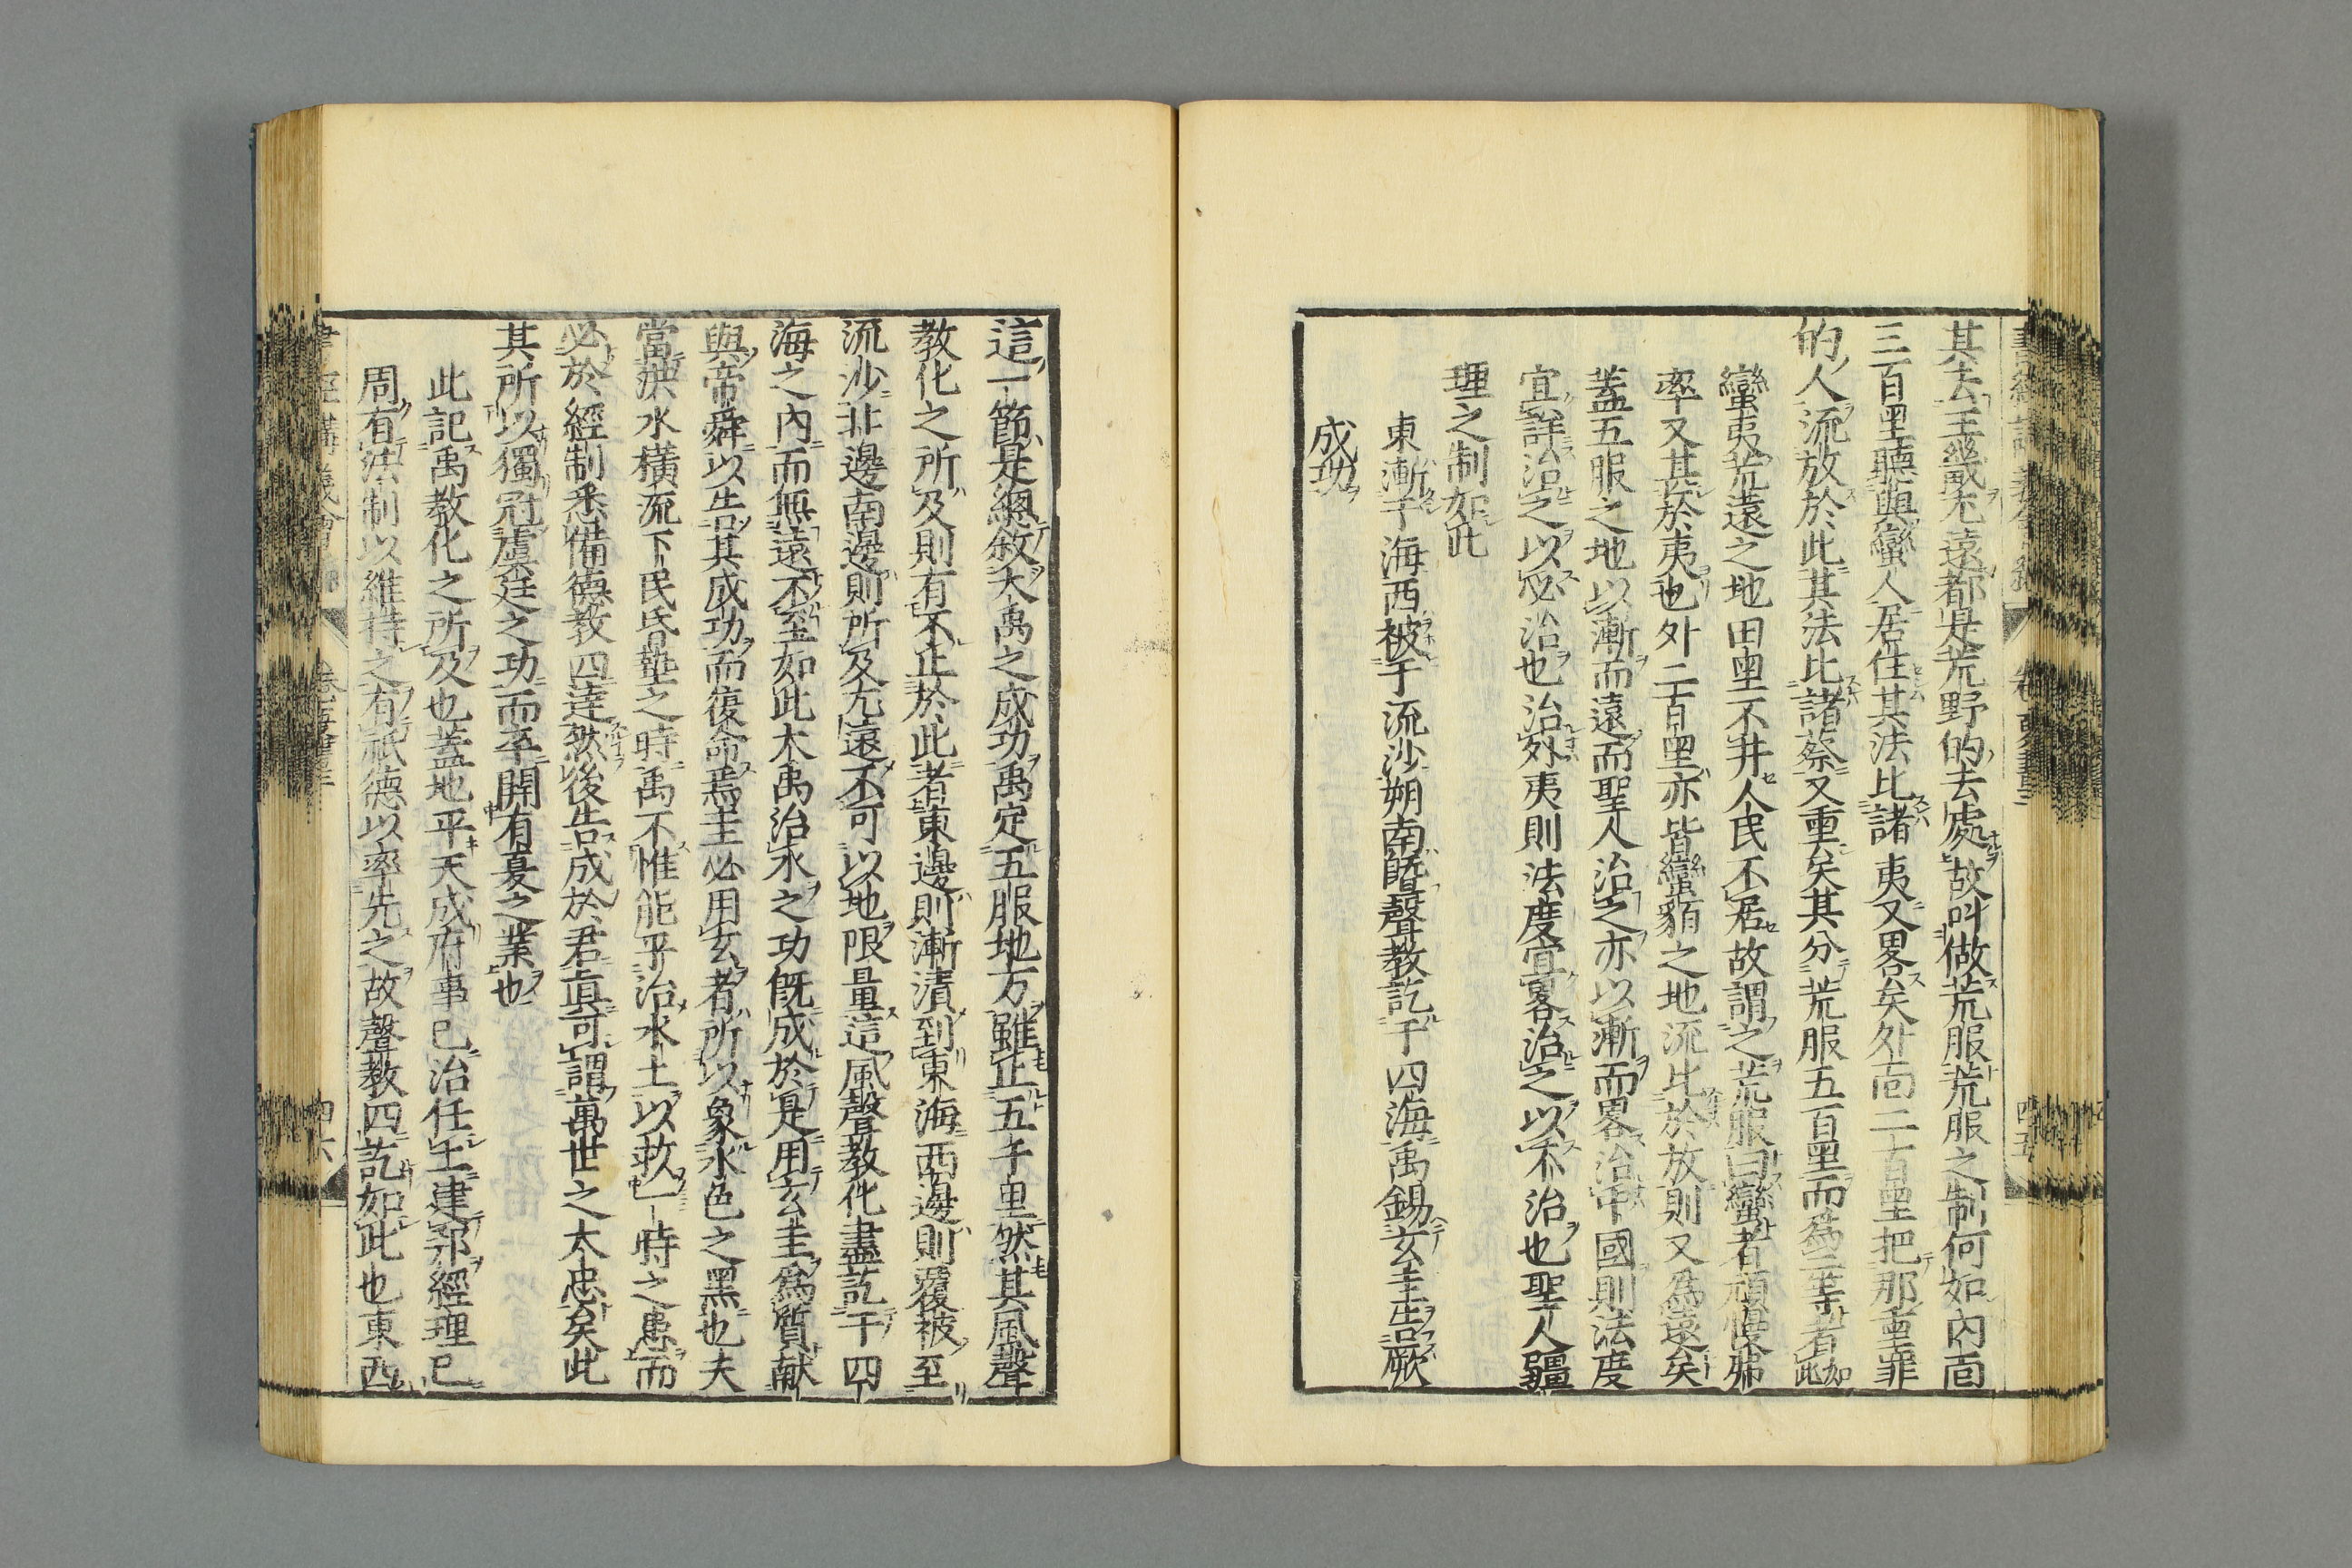 其去王畿尤遠都是荒野的去處故叫做荒服荒服之制何如內面
三百里聽與蠻人居住其法比諸夷又畧矣外面二百里把那重罪
的人流放於此其法比諸蔡又重矣其分荒服五百里而爲二等者如此
蠻夷荒遠之地田里不井人民不居故謂之荒服曰蠻者頑慢弗
率又甚於夷也外二百里亦皆蠻貊之地流比於放則又爲遠矣
蓋五服之地以漸而遠而聖人治之亦以漸而畧治中國則法度
宜詳治之以必治也治外夷則法度宜畧治之以不治也聖人疆
理之制如此
東漸于海西被于流沙朔南曁聲教訖于四海禹錫玄圭告厥
成功
這一節是總敘大禹之成功禹定五服地方雖止五千里然其風聲
教化之所及則有不止於此者東邊則漸漬到東海西邊則覆被至
流沙北邊南邊則所及尤遠不可以地限量這風聲教化盡訖于四
海之內而無遠不至如此大禹治水之功既成於是用玄圭爲質献
與帝舜以告其成功而復命焉圭必用玄者所以象水色之黑也夫
當洪水橫流下民昏墊之時禹不惟能平治水土以救一時之患而
必於經制悉備德教四達然後告成於君眞可謂萬世之大忠矣此
其所以獨冠虞廷之功而卒開有夏之業也
此記禹教化之所及也蓋地平天成府事已治任土建邦經理已
周有法制以維持之有祇德以率先之故聲教四訖如此也東西